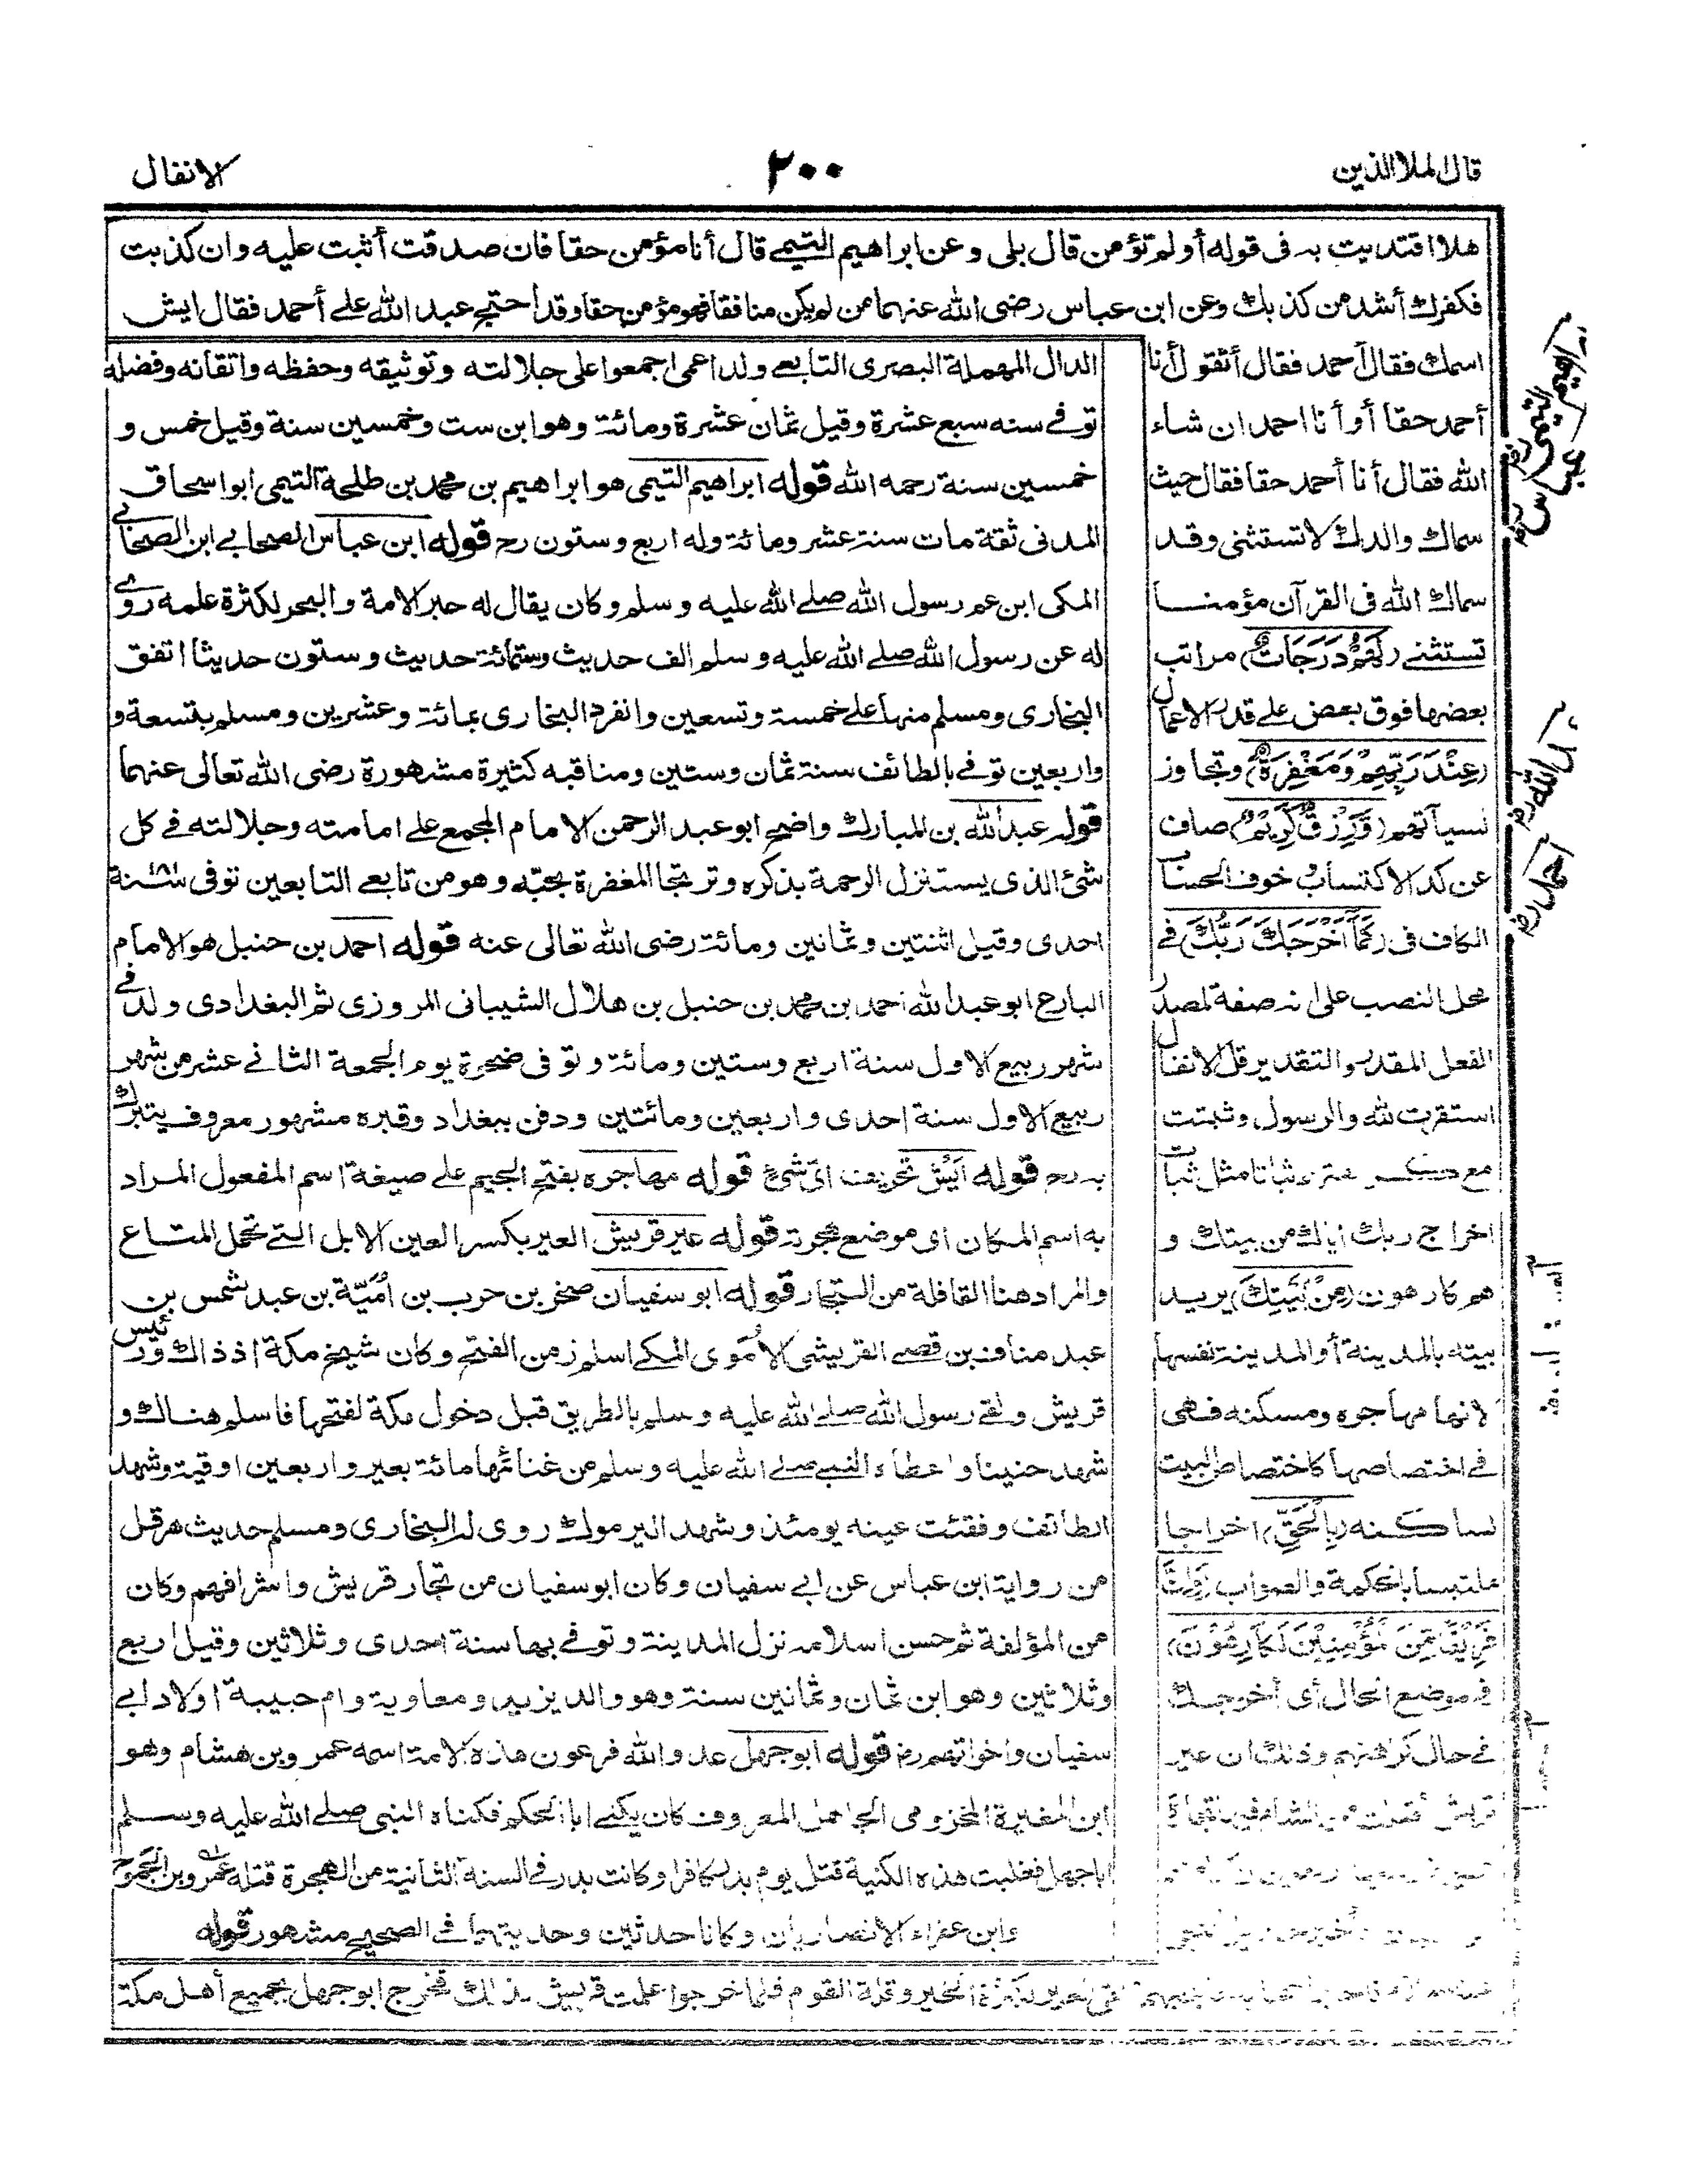 قال الملأ الذين
٢٠٠
الانفال
هلا اقتديت به فى قوله أولم تؤمن قال بلى وعن ابراهيم التيمى قال أنا مؤمن حقا فان صدقت أثبت عليه وان كذبت
فكفرك أشد من كذبك وعن ابن عباس رضى الله عنهما من لم يكن منافقا فهو مؤمن حقا وقد احتج عبد الله على أحمد فقال ايش
اسمك فقال أحمد فقال أتقول أنا
أحمد حقا أو أنا احمد ان شاء
الله فقال أنا أحمد حقا فقال حيث
سماك والدك لا تستثنى وقد
سماك الله فى القرآن مؤمنا
تستثنى (لَهُمْ دَرَجَاتٌ) مراتب
بعضها فوق بعض على قدر الاعمال
(عِنْدَ رَبِّهِمْ وَمَغْفِرَةٌ) وتجاوز
لسيآتهم (وَّرِزْقٌ كَرِيْمٌ) صاف
عن كد الاكتساب وخوف الحساب
الكاف فى (كَمَآ اَخْرَجَكَ رَبُّكَ) فى
محل النصب على انه صفة لمصدر
الفعل المقدر والتقدير قل الانفال
استقرت لله والرسول وثبتت
مع ثباتا مثل ثبات
اخراج ربك اياك من بيتك و
هم كارهون (مِنْ بَيْتِكَ) يريد
بيته بالمدينة أو المدينة نفسها
لانها مهاجره ومسكنه فهى
فى اختصاصها كاختصاص البيت
بساكنه (بِالْحَقِّ) اخراجا
ملتبسا بالحكمة والصواب (وَاِنَّ
فَرِيْقًا مِّنَ الْمُؤْمِنِيْنَ لَكَارِهُوْنَ)
فى موضع الحال أى أخرجك
فى حال كراهتهم وذلك ان عير
قريش أقبلت من الشام فيها تجارة
الدال المهملة البصرى التابعى ولد اعمى اجمعوا على جلالته وتوثيقه وحفظه واتقانه وفضله
توفى سنه سبع عشرة وقيل ثمان عشرة ومائة وهو ابن ست وخمسين سنة وقيل خمس و
خمسين سنة رحمه الله قوله ابراهيم التيمى هو ابراهيم بن محمد بن طلحة التيمى ابو اسحاق
المدنى ثقة مات سنة عشر ومائة وله اربع وستون رح قوله ابن عباس الصحابى ابن الصحابى
المكى ابن عم رسول الله صلى الله عليه وسلم وكان يقال له حبر الامة والبحر لكثرة علمه روى
له عن رسول الله صلى الله عليه وسلم الف حديث وستمائة حديث وستون حديثا اتفق
البخارى ومسلم منها على خمسة وتسعين وانفرد البخارى بمائة وعشرين ومسلم بتسعة و
واربعين توفى بالطائف سنة ثمان وستين ومناقبه كثيرة مشهورة رضى الله تعالى عنهما
قوله عبد الله بن المبارك واضح ابو عبد الرحمن الامام المجمع على امامته وجلالته فى كل
شئ الذى يستنزل الرحمة بذكره وترتجا المغفرة بحبّه وهو من تابعى التابعين توفى ١٨١ سنة
احدى وقيل اثنتين وثمانين ومائة رضى الله تعالى عنه قوله احمد بن حنبل هو الامام
البارع ابو عبد الله احمد بن محمد بن حنبل بن هلال الشيبانى المروزى ثم البغدادى ولد فى
شهر ربيع الاول سنة اربع وستين ومائة وتوفى ضحوة يوم الجمعة الثانى عشر من شهر
ربيع الاول سنة احدى واربعين ومائتين ودفن ببغداد وقبره مشهور معروف يتبرك
به رح قوله اَيْش تحريف اىّ شئ قوله مهاجره بفتح الجيم على صيغة اسم المفعول المراد
به اسم المكان اى موضع هجرته قوله عير قريش العير بكسر العين الابل التى تحمل المتاع
والمراد هنا القافلة من التجار قوله ابو سفيان صخر بن حرب بن اُمَيّة بن عبد شمس بن
عبد مناف بن قصى القريشى الاُمَوى المكى اسلم زمن الفتح وكان شيخ مكة اذ ذاك ورئيس
قريش ولقى رسول الله صلى الله عليه وسلم بالطريق قبل دخول مكة لفتحها فاسلم هناك و
شهد حنينا واعطاه النبى صلى الله عليه وسلم من غنائمها مائة بعير واربعين اوقية وشهد
الطائف وفقئت عينه يومئذ وشهد اليرموك روى له البخارى ومسلم حديث هرقل
من رواية ابن عباس عن ابى سفيان وكان ابو سفيان من تجار قريش واشرافهم وكان
من المؤلفة ثم حسن اسلامه نزل المدينة وتوفى بها سنة احدى وثلاثين وقيل اربع
وثلاثين وهو ابن ثمان وثمانين سنة وهو والد يزيد ومعاوية وام حبيبة اولاد ابى
سفيان واخواتهم رض قوله ابو جهل عدو الله فرعون هذه الامة اسمه عمرو بن هشام وهو
ابن المغيرة المخزومى الجاهل المعروف كان يكنى ابا الحكم فكناه النبى صلى الله عليه وسلم
ابا جهل فغلبت هذه الكنية قتل يوم بدر كافرا وكانت بدر فى السنة الثانية من الهجرة قتله عمرو بن الجموح
وابن عفراء الانصاريان وكانا حدثين وحديثهما فى الصحيح مشهور قوله
تلقى العير لكثرة الخير وقلة القوم فلما خرجوا علمت قريش بذلك فخرج ابو جهل بجميع أهل مكة
ابراهيم التيمى رض
ابن عباس رض
عبد الله رض
احمد رض